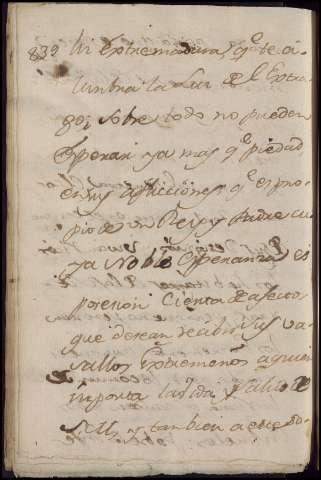 832 tri extremadura, qe. te a
lumbra la Luz de el Extra
go; sobre todo no pueden
esperar ya mas qe. piedad
en sus aflicciones qe. es pro
pio de un Rey, y Padre cu
ya Noble Esperanza es
posesion cierta de afectos
que desean recibir sus va
sallos extremeños a quien
importa la vida y salud de
S. M. y tambien a este